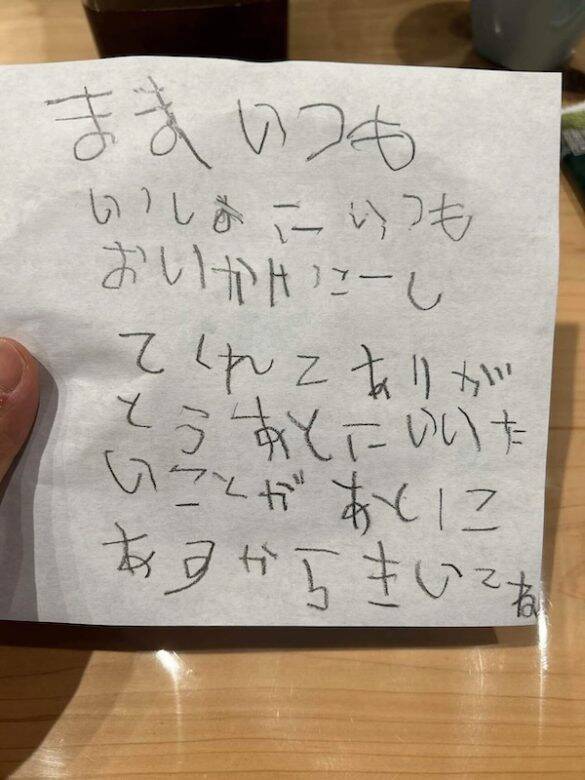 まま いつも
いつしょに いつも
おいかけこーし
てくれて ありが
とう あとに いいた
いことが あとに
あるから きいてね